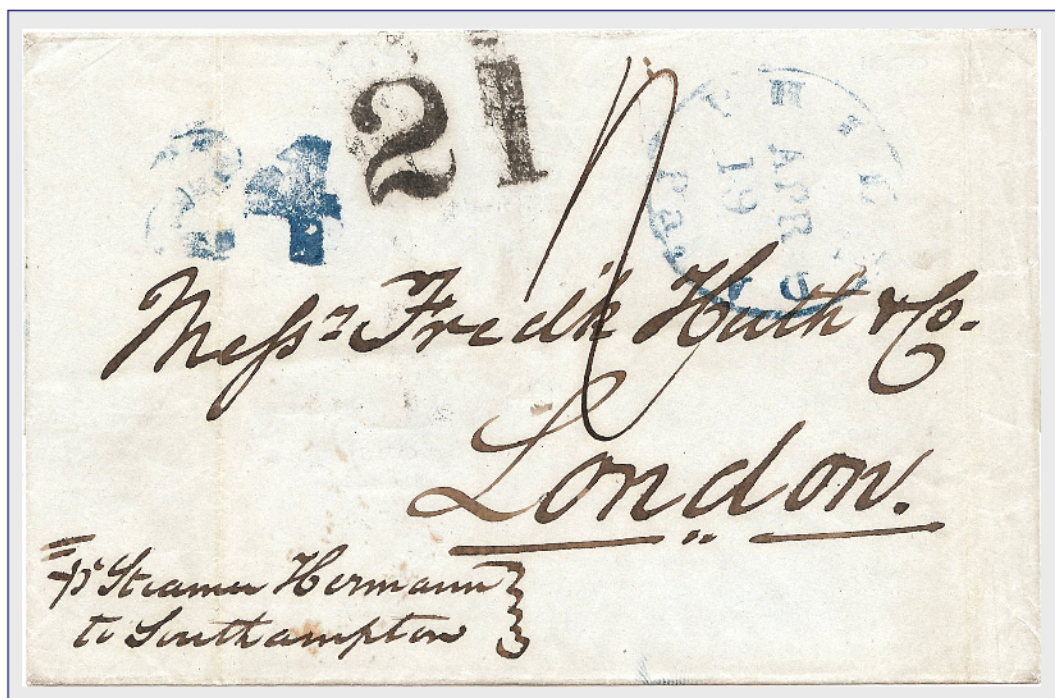 24
21
APR
19
Pa.
Messrs Fredk Huth & Co.
London.
pr Steamer Hermann
to Southampton